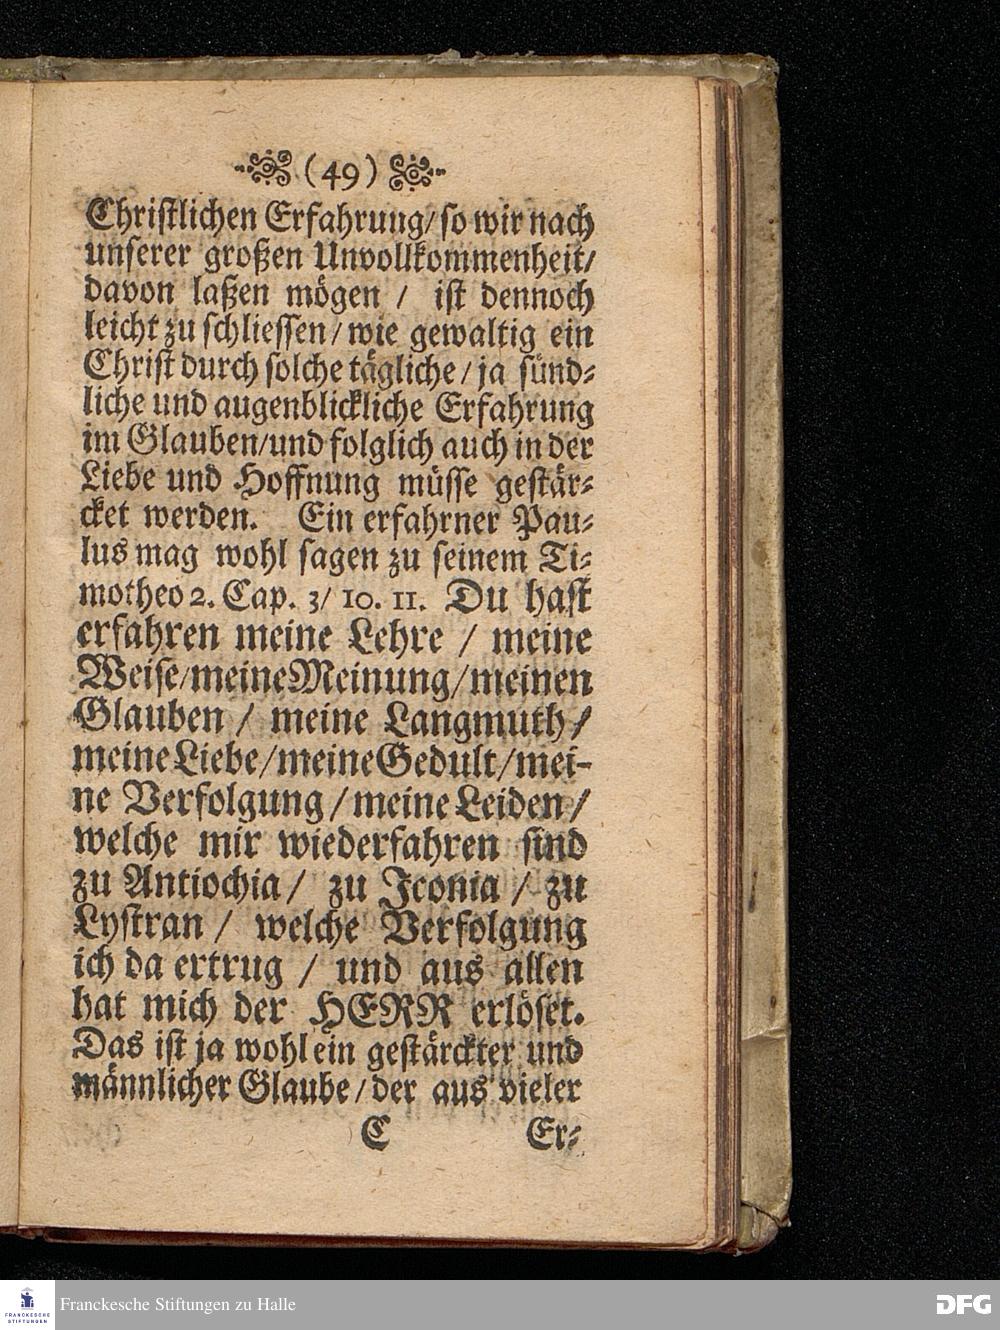 (49)
Christlichen Erfahrung/ so wir nach
unserer großen Unvollkommenheit/
davon laßen mögen / ist dennoch
leicht zu schliessen/ wie gewaltig ein
Christ durch solche tägliche/ ja sünd-
liche und augenblickliche Erfahrung
im Glauben/und folglich auch in der
Liebe und Hoffnung müsse gestär-
cket werden. Ein erfahrner Pau-
lus mag wohl sagen zu seinem Ti-
motheo 2. Cap. 3/ 10. 11. Du hast
erfahren meine Lehre / meine
Weise/meine Meinung/meinen
Glauben / meine Langmuth/
meine Liebe/meine Gedult/mei-
ne Verfolgung/meine Leiden/
welche mir wiederfahren sind
zu Antiochia/ zu Iconia / zu
Lystran / welche Verfolgung
ich da ertrug / und aus allen
hat mich der HERR erlöset.
Das ist ja wohl ein gestärckter und
männlicher Glaube/der aus vieler
C Er-
FRANCKESCHE
STIFTUNGEN
Franckesche Stiftungen zu Halle
DFG